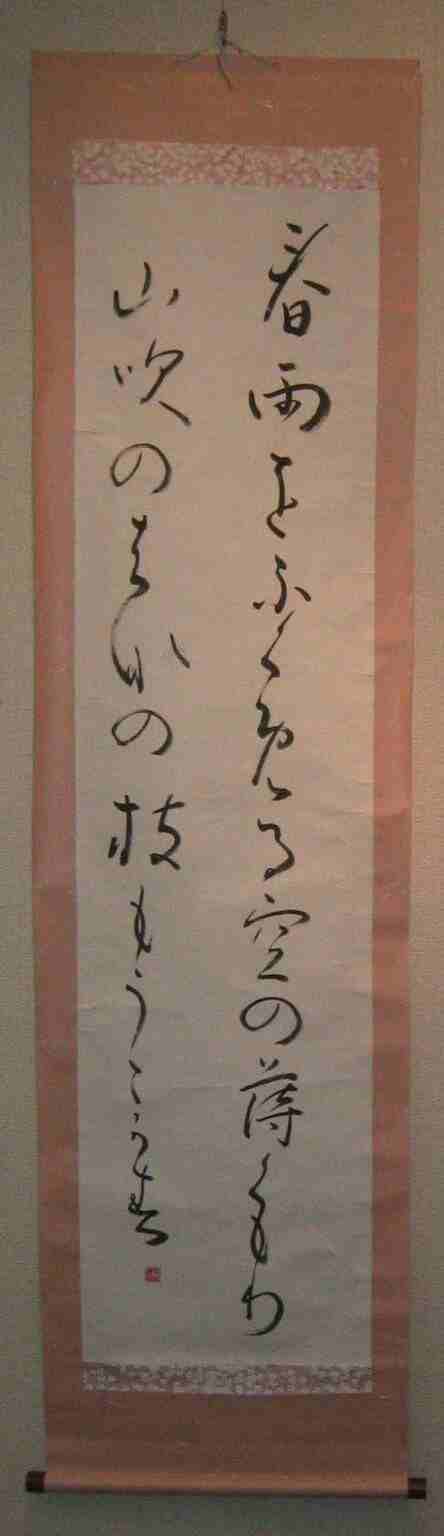 春雨をふくめる空の薄くもり
山吹のはなの枝もうこかす